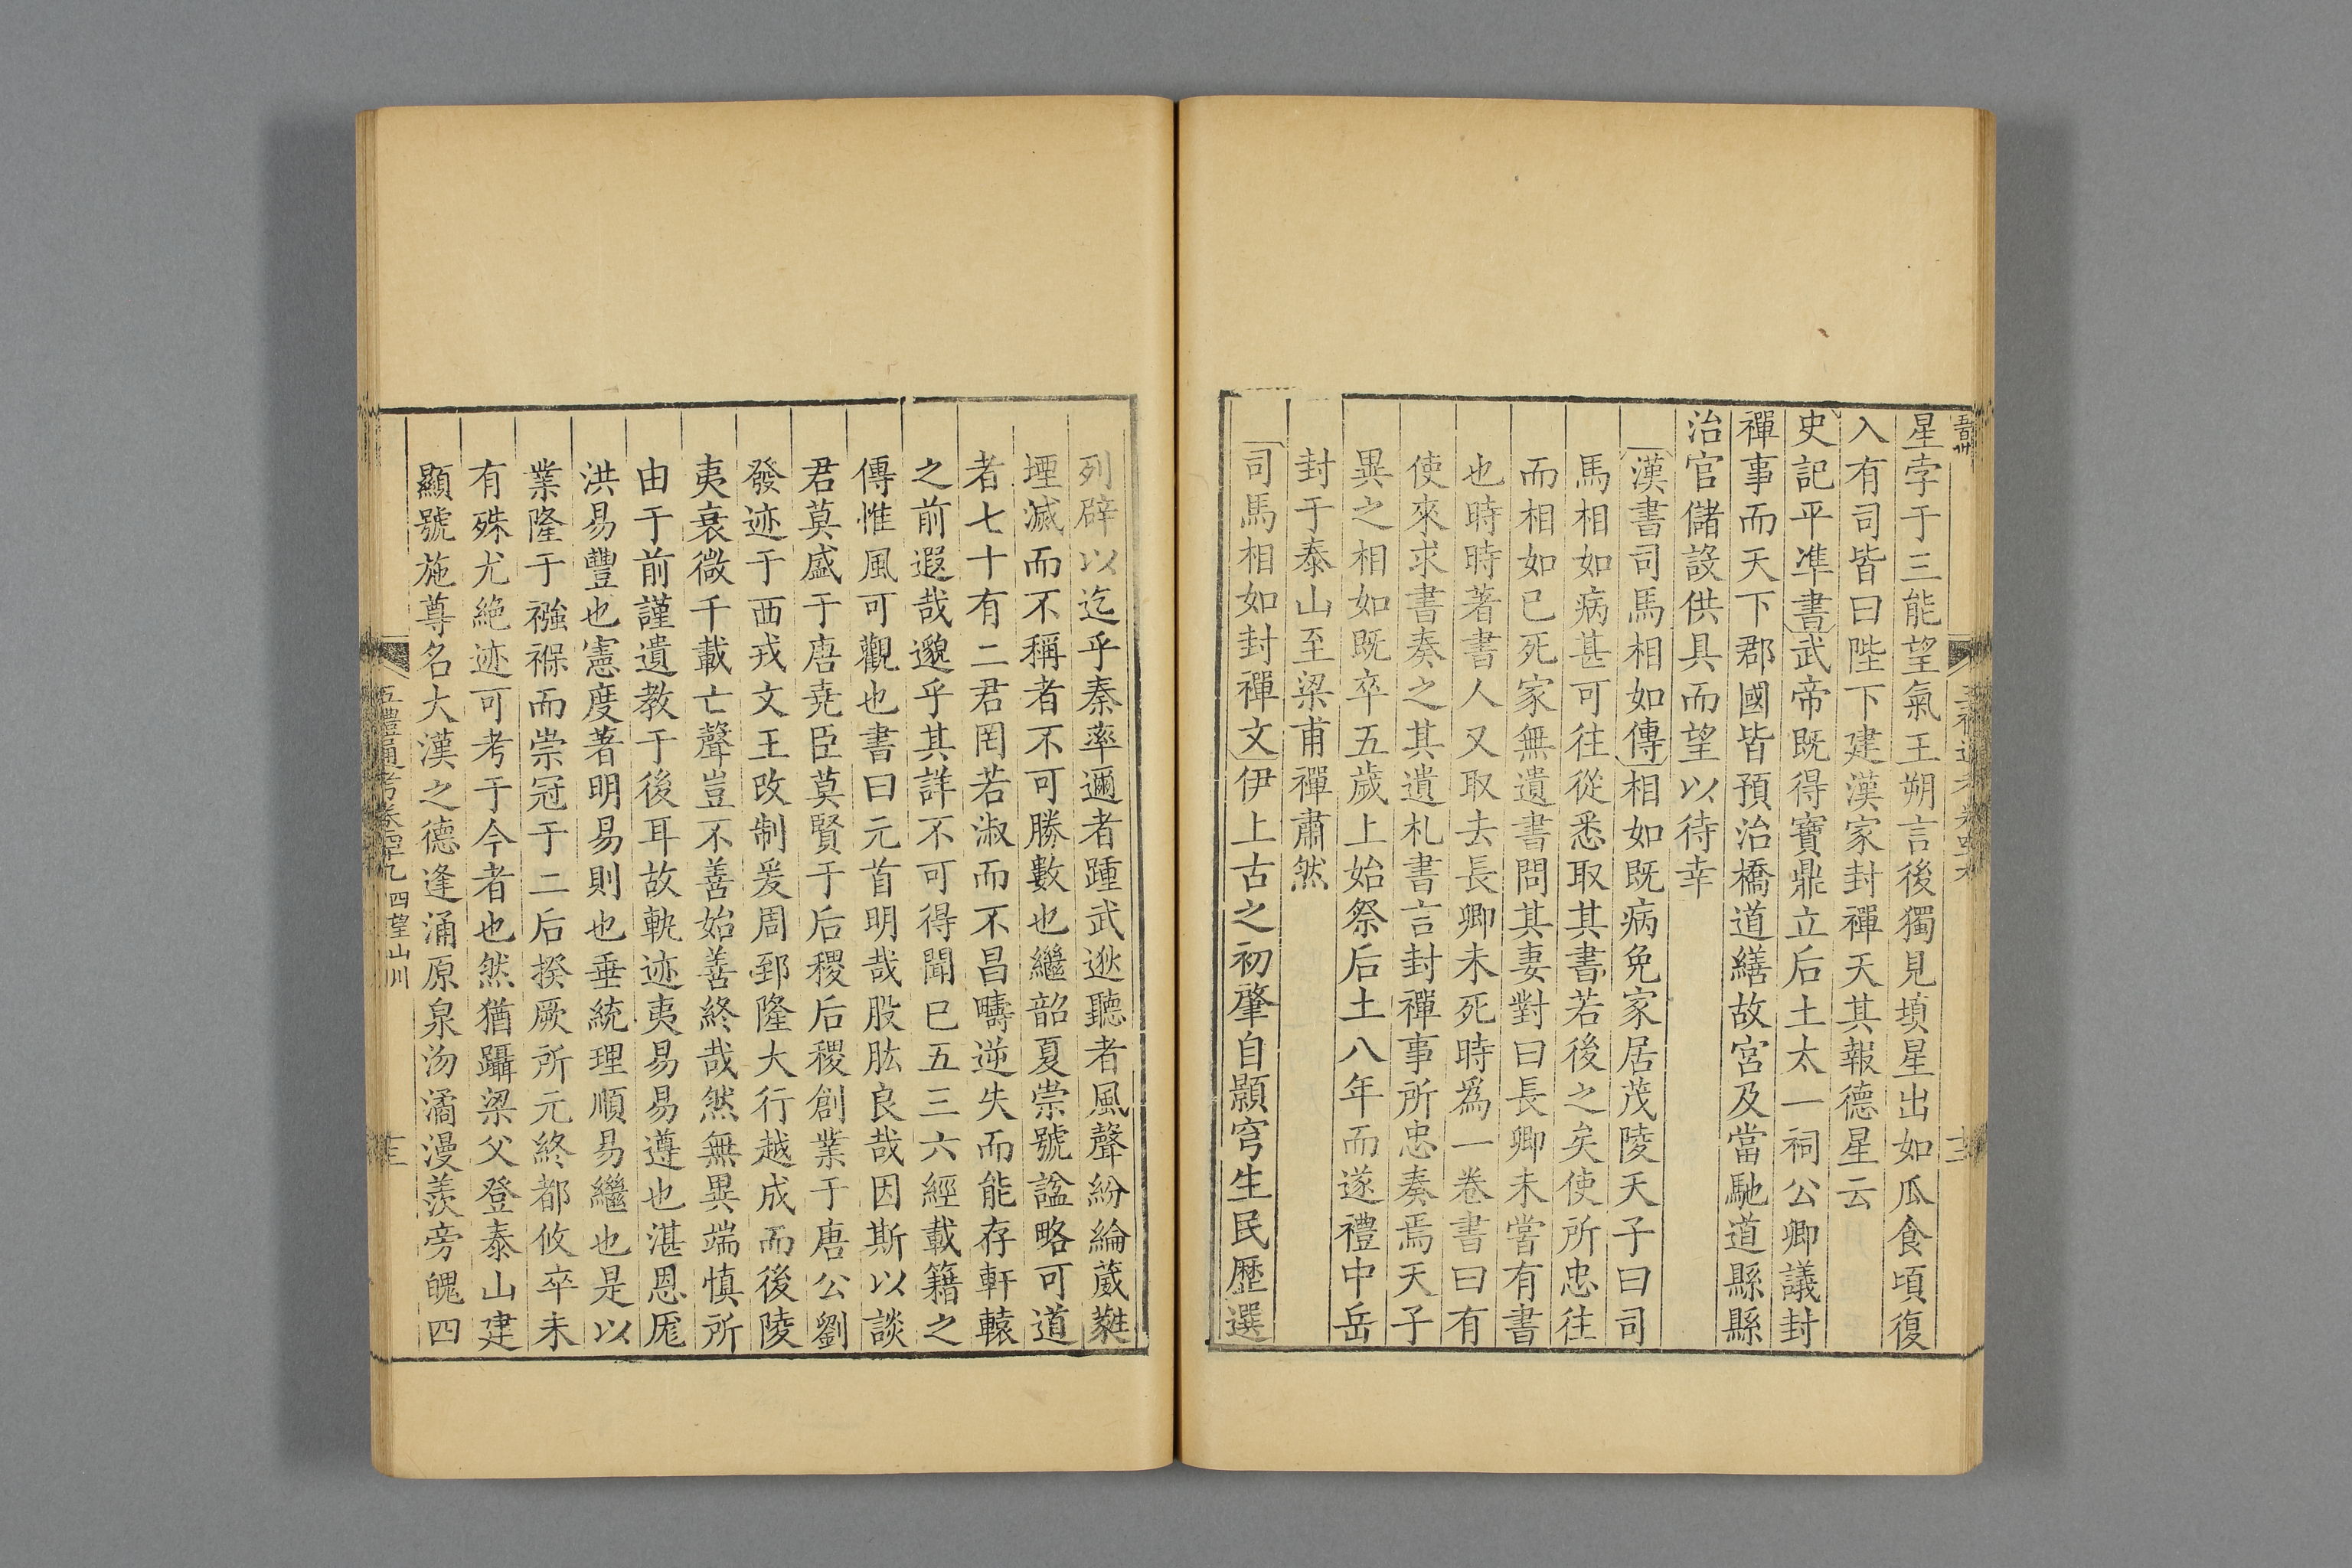 星孛于三能望氣王朔言後獨見塡星出如瓜食頃復
入有司皆曰陛下建漢家封禪天其報德星云
史記平準書武帝既得寶鼎立后土太一祠公卿議封
禪事而天下郡國皆預治橋道繕故宮及當馳道縣縣
治官儲設供具而望以待幸
漢書司馬相如傳相如既病免家居茂陵天子曰司
馬相如病甚可往從悉取其書若後之矣使所忠往
而相如已死家無遺書問其妻對曰長卿未嘗有書
也時時著書人又取去長卿未死時爲一卷書曰有
使來求書奏之其遺札書言封禪事所忠奏焉天子
異之相如既卒五歲上始祭后土八年而遂禮中岳
封于泰山至梁甫禪肅然
司馬相如封禪文伊上古之初肇自顥穹生民歷選
列辟以迄乎秦率邇者踵武逖聽者風聲紛綸葳蕤
堙滅而不稱者不可勝數也繼韶夏崇號諡略可道
者七十有二君罔若淑而不昌疇逆失而能存軒轅
之前遐哉邈乎其詳不可得聞已五三六經載籍之
傳惟風可觀也書曰元首明哉股肱良哉因斯以談
君莫盛于唐堯臣莫賢于后稷后稷創業于唐公劉
發迹于西戎文王改制爰周郅隆大行越成而後陵
夷衰微千載亡聲豈不善始善終哉然無異端愼所
由于前謹遺教于後耳故軌迹夷易易遵也湛恩厖
洪易豐也憲度著明易則也垂統理順易繼也是以
業隆于襁褓而崇冠于二后揆厥所元終都攸卒未
有殊尤絶迹可考于今者也然猶躡梁父登泰山建
顯號施尊名大漢之德逢涌原泉沕潏漫羨旁魄四
五禮通考卷四十九 四望山川 十三